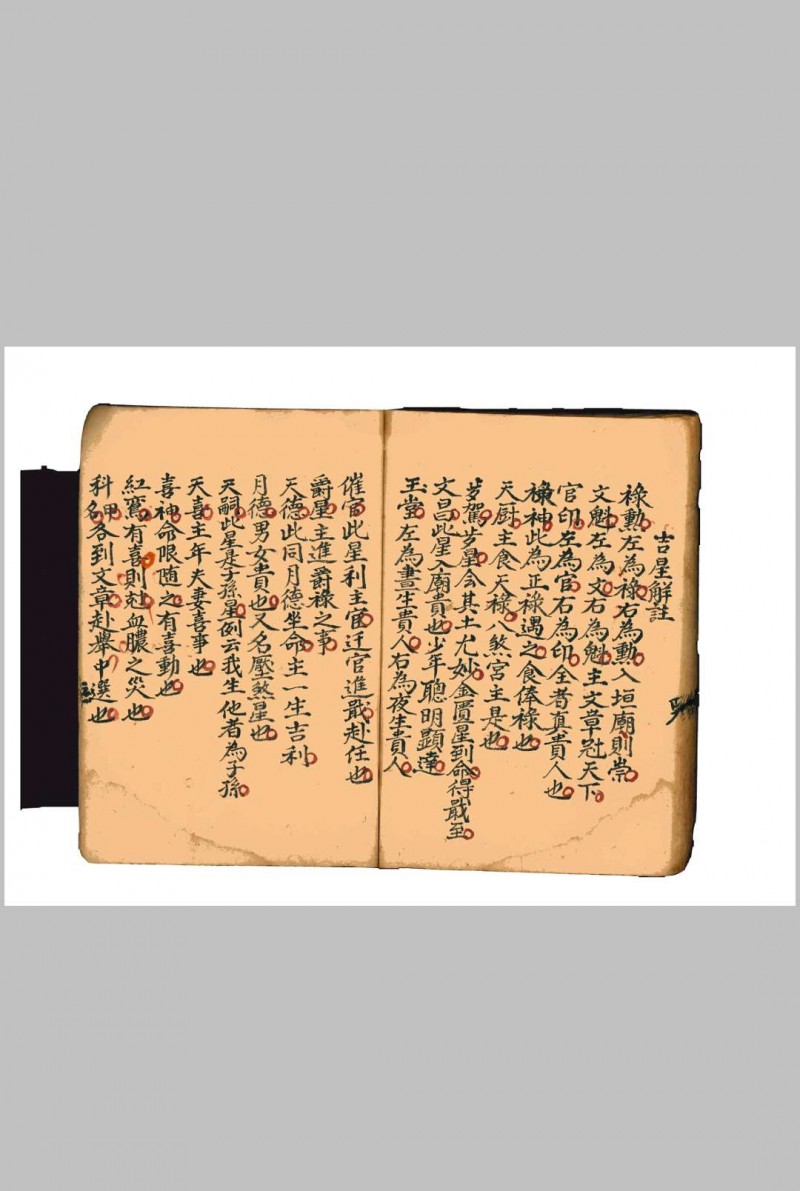 吉星解註
祿勲左為祿右為勲入垣廟則崇
文魁左為文右為魁主文章冠天下
官印左為官右為印全者真貴人也
祿神此為正祿遇之食俸祿也
天厨主食天祿八煞宮主是也
岁駕岁星会其土尤妙金匱星到命得戢至
文昌此星入廟貴也少年聰明顕達
玉堂左為晝生貴人右為夜生貴人
催官此星利主官迁官進戢赴任也
爵星主進爵祿之事
天德此同月德坐命主一生吉利
月德男女貴也又名壓煞星也
天嗣此星是子孫星例云我生他者為子孫
天喜主年夫妻喜事也
喜神命限随之有喜動也
紅鸞有喜則尅血膿之災也
科甲名各到文章赴舉中選也